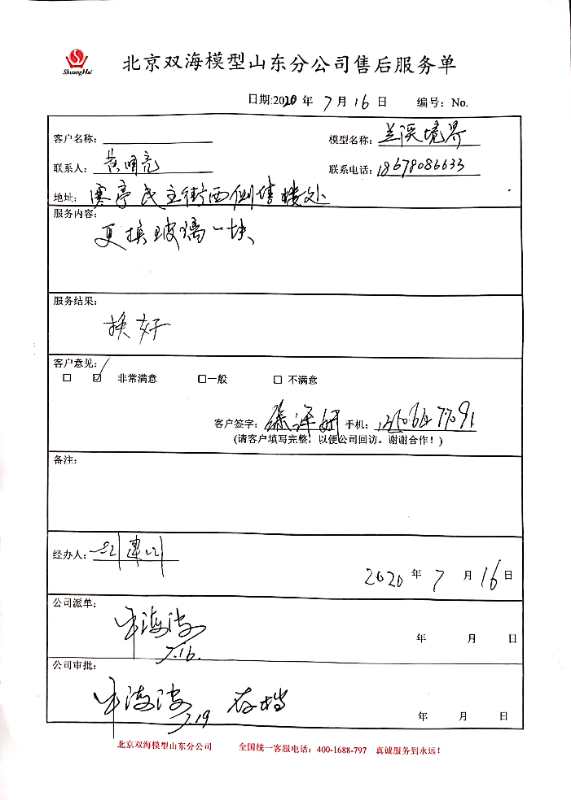 ShuangHai
北京双海模型山东分公司售后服务单
日期:2020年7月16日 编号: No.
客户名称: 模型名称: 兰溪境界
联系人: 黄明亮 联系电话: 18678086633
地址: 寒亭民主街西侧售楼处
服务内容:
更换玻璃一块
服务结果:
换好
客户意见:
非常满意 一般 不满意
客户签字: 手机:
(请客户填写完整!以便公司回访。谢谢合作!)
备注:
经办人:
2020年7月16日
公司派单:
7.16.
年 月 日
公司审批:
7.19 存档
年 月 日
北京双海模型山东分公司 全国统一客服电话: 400-1688-797 真诚服务到永远!